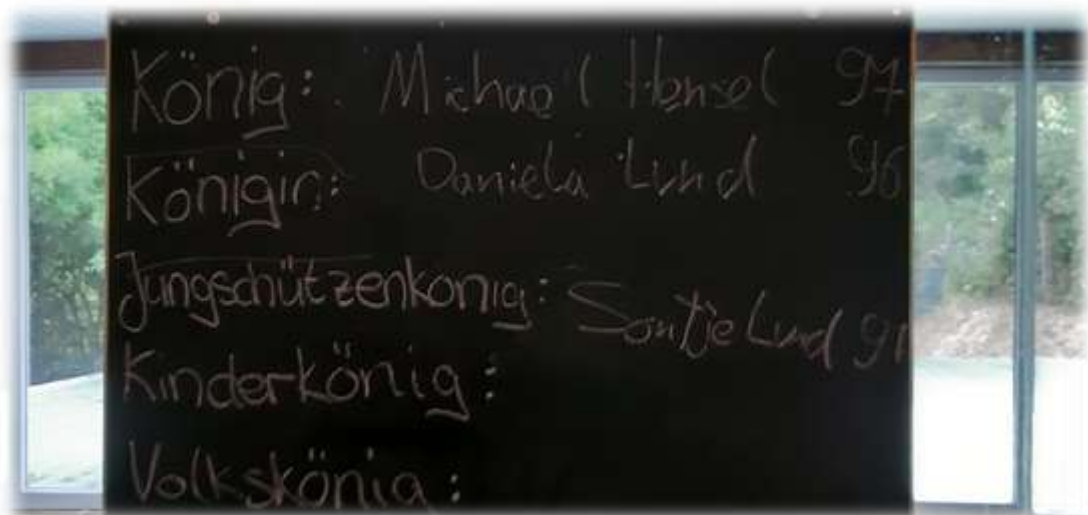 König: Michael Hensel 97
Königin: Daniela Lund 96
Jungschützenkönig: Søntje Lund 91
Kinderkönig:
Volkskönig: